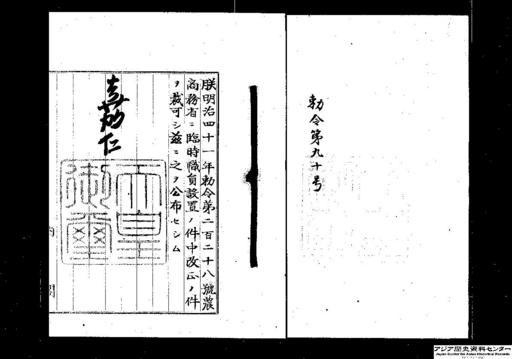 勅令第九十号
朕明治四十一年勅令第二百二十八號農
商務省ニ臨時職員設置ノ件中改正ノ件
ヲ裁可シ茲ニ之ヲ公布セシム
嘉仁
天皇
御璽
内
閣
アジア歴史資料センター
Japan Center for Asian Historical Records